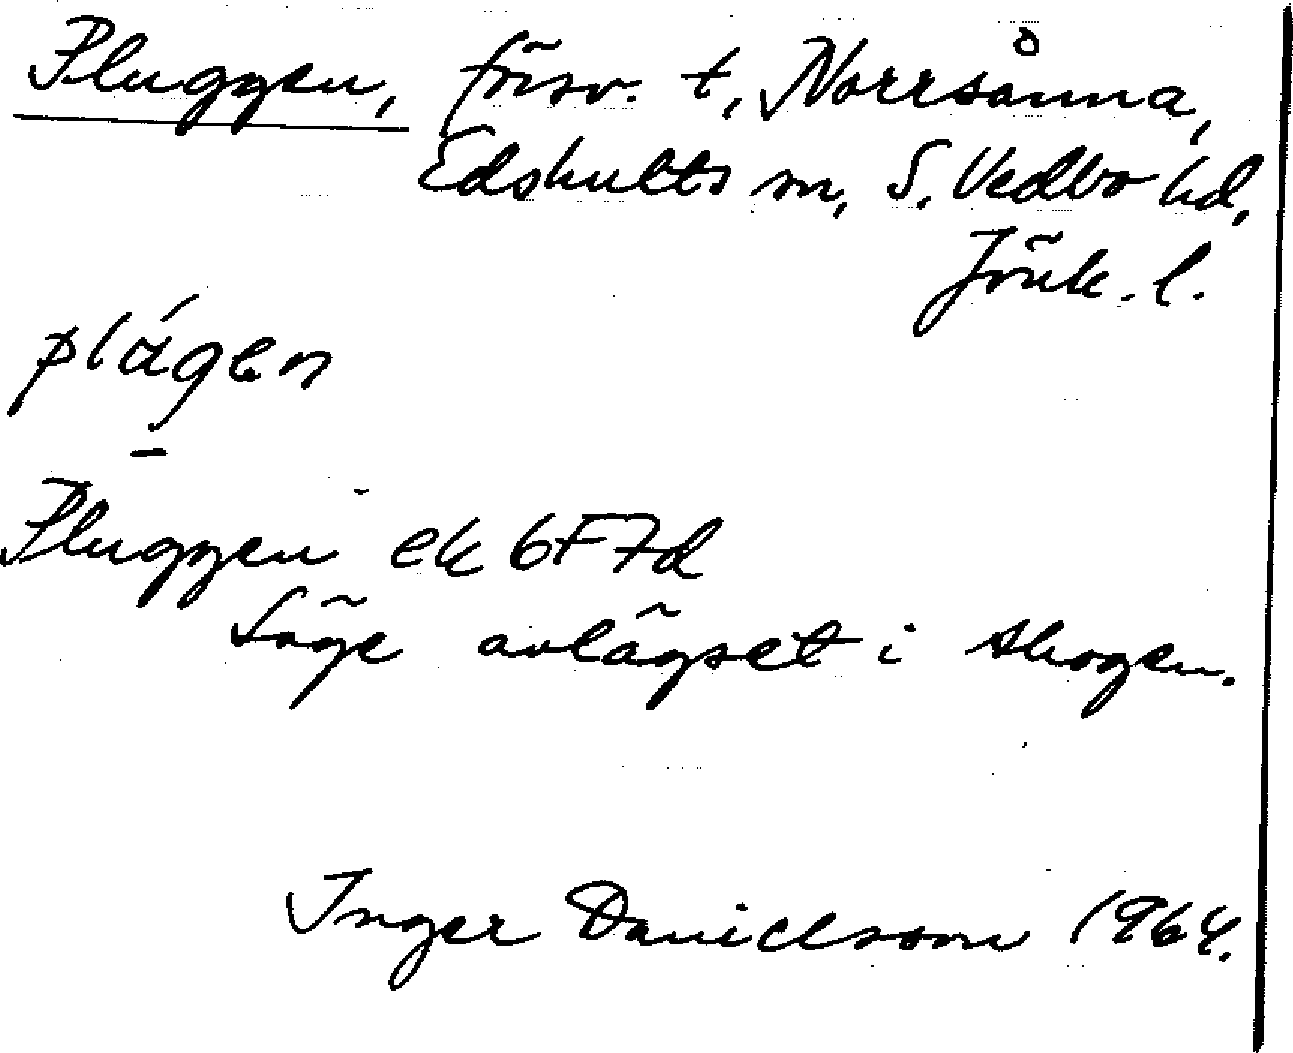 Pluggen, försv. t, Norrsånna,
Edshults sn, S. Vedbo hd,
Jönk. l.
plágen
Pluggen ek 6F7d
Läge avlägset i skogen.
Inger Danielsson 1964.